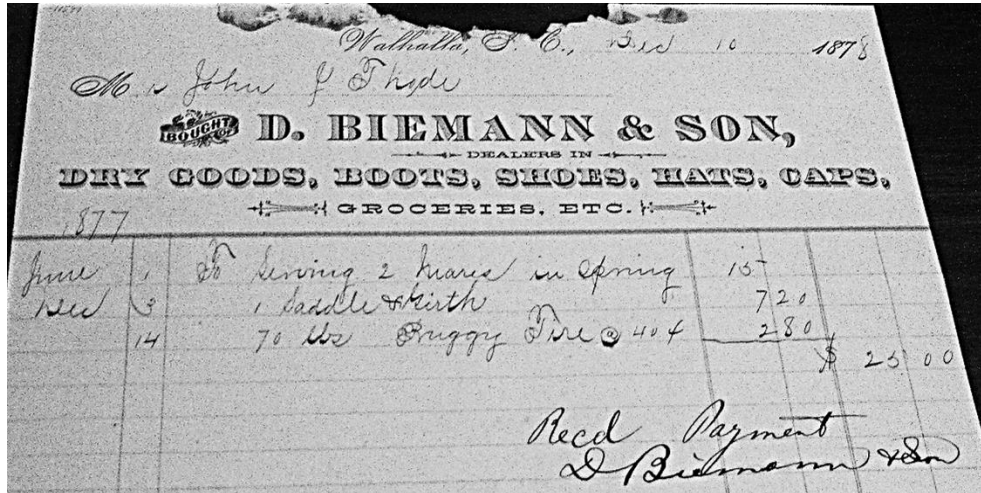 Walhalla, S. C., Dec 10 1878
Mrs John J Thode
BOUGHT OF D. BIEMANN & SON,
DEALERS IN
DRY GOODS, BOOTS, SHOES, HATS, CAPS,
GROCERIES, ETC.
1877
June 1 To Serving 2 Mares in Spring 15
Dec 3 1 Saddle & Girth 7 20
14 70 lbs Buggy Tire @ 4 0 ¢ 2 80
$ 25 00
Recd Payment
D Biemann & Son